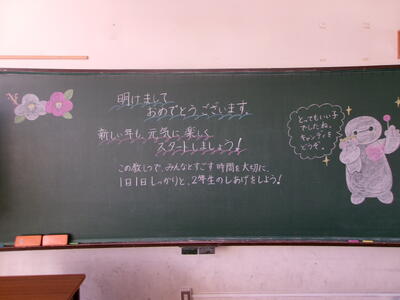 明けまして
おめでとうございます
新しい年も、元気に楽しく
スタートしましょう!
この教しつで、みんなとすごす時間を大切に、
1日1日しっかりと、2年生のしあげをしよう!
とってもいい子
でしたね。
キャンディを
どうぞ。